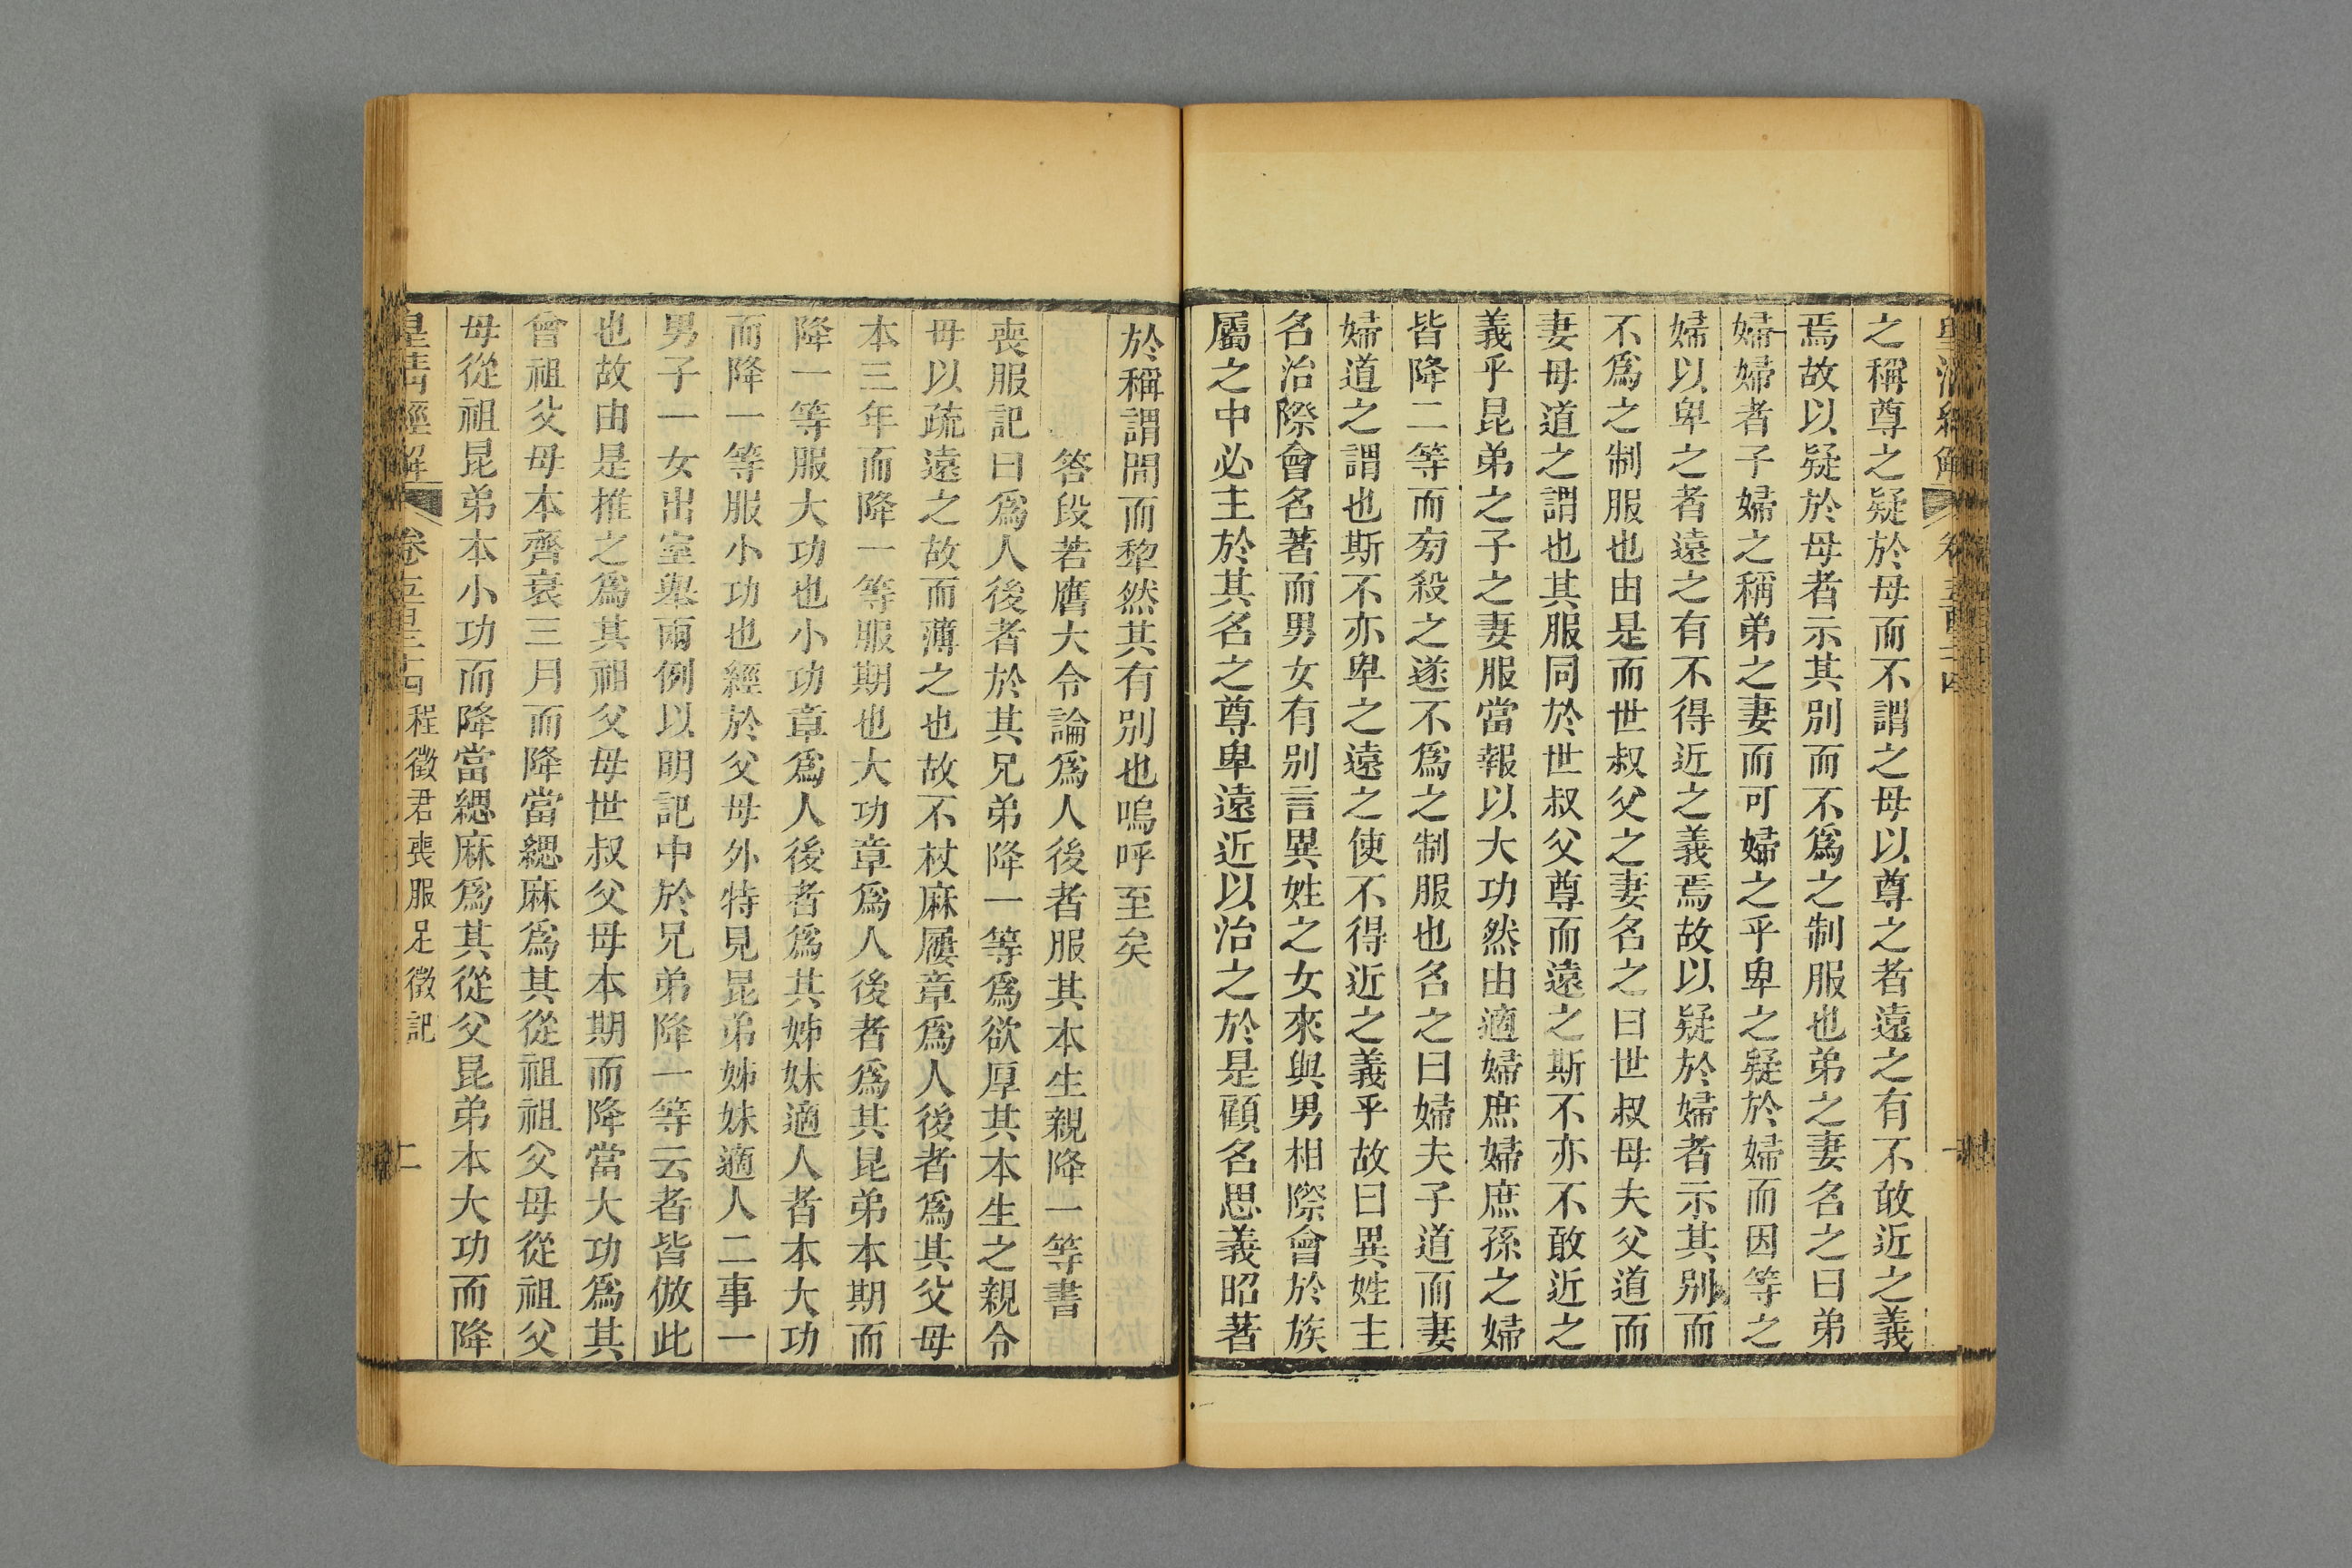 之稱尊之疑於母而不謂之母以尊之者遠之有不敢近之義
焉故以疑於母者示其別而不爲之制服也弟之妻名之曰弟
婦婦者子婦之稱弟之妻而可婦之乎卑之疑於婦而因等之
婦以卑之者遠之有不得近之義焉故以疑於婦者示其別而
不爲之制服也由是而世叔父之妻名之曰世叔母夫父道而
妻母道之謂也其服同於世叔父尊而遠之斯不亦不敢近之
義乎昆弟之子之妻服當報以大功然由適婦庶婦庶孫之婦
皆降二等而殺之遂不爲之制服也名之曰婦夫子道而妻
婦道之謂也斯不亦卑之遠之使不得近之義乎故曰異姓主
名治際會名著而男女有別言異姓之女來與男相際會於族
屬之中必主於其名之尊卑遠近以治之於是顧名思義昭著
於稱謂閒而犂然其有別也嗚呼至矣
答段若膺大令論爲人後者服其本生親降一等書
喪服記曰爲人後者於其兄弟降一等爲欲厚其本生之親令
毋以疏遠之故而薄之也故不杖麻屨章爲人後者爲其父母
本三年而降一等服期也大功章爲人後者爲其昆弟本期而
降一等服大功也小功章爲人後者爲其姊妹適人者本大功
而降一等服小功也經於父母外特見昆弟姊妹適人二事一
男子一女出室舉兩例以明記中於兄弟降一等云者皆倣此
也故由是推之爲其祖父母世叔父母本期而降當大功爲其
曾祖父母本齊衰三月而降當緦麻爲其從祖祖父母從祖父
母從祖昆弟本小功而降當緦麻爲其從父昆弟本大功而降
皇清經解 卷五百二十四 程徵君喪服足徵記 二